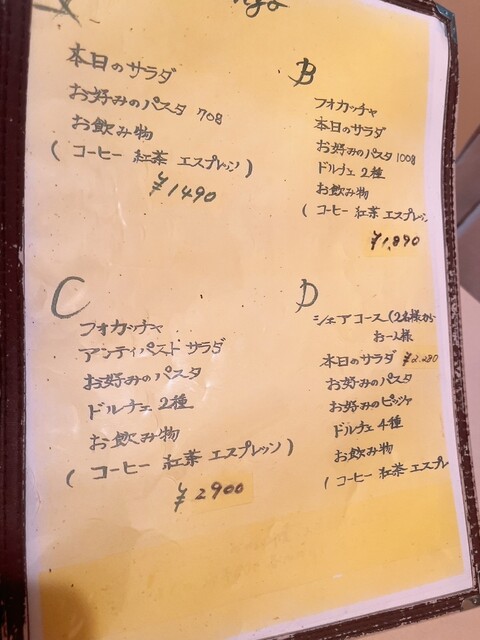 本日のサラダ
お好みのパスタ 70g
お飲み物
( コーヒー 紅茶 エスプレッソ )
¥1490
B
フォカッチャ
本日のサラダ
お好みのパスタ 100g
ドルチェ 2種
お飲み物
( コーヒー 紅茶 エスプレッソ
¥1,890
C
フォカッチャ
アンティパスト サラダ
お好みのパスタ
ドルチェ 2種
お飲み物
( コーヒー 紅茶 エスプレッソ )
¥2900
D
シェアコース (2名様から
お一人様
本日のサラダ ¥2,280
お好みのパスタ
お好みのピッツァ
ドルチェ 4種
お飲み物
( コーヒー 紅茶 エスプレ